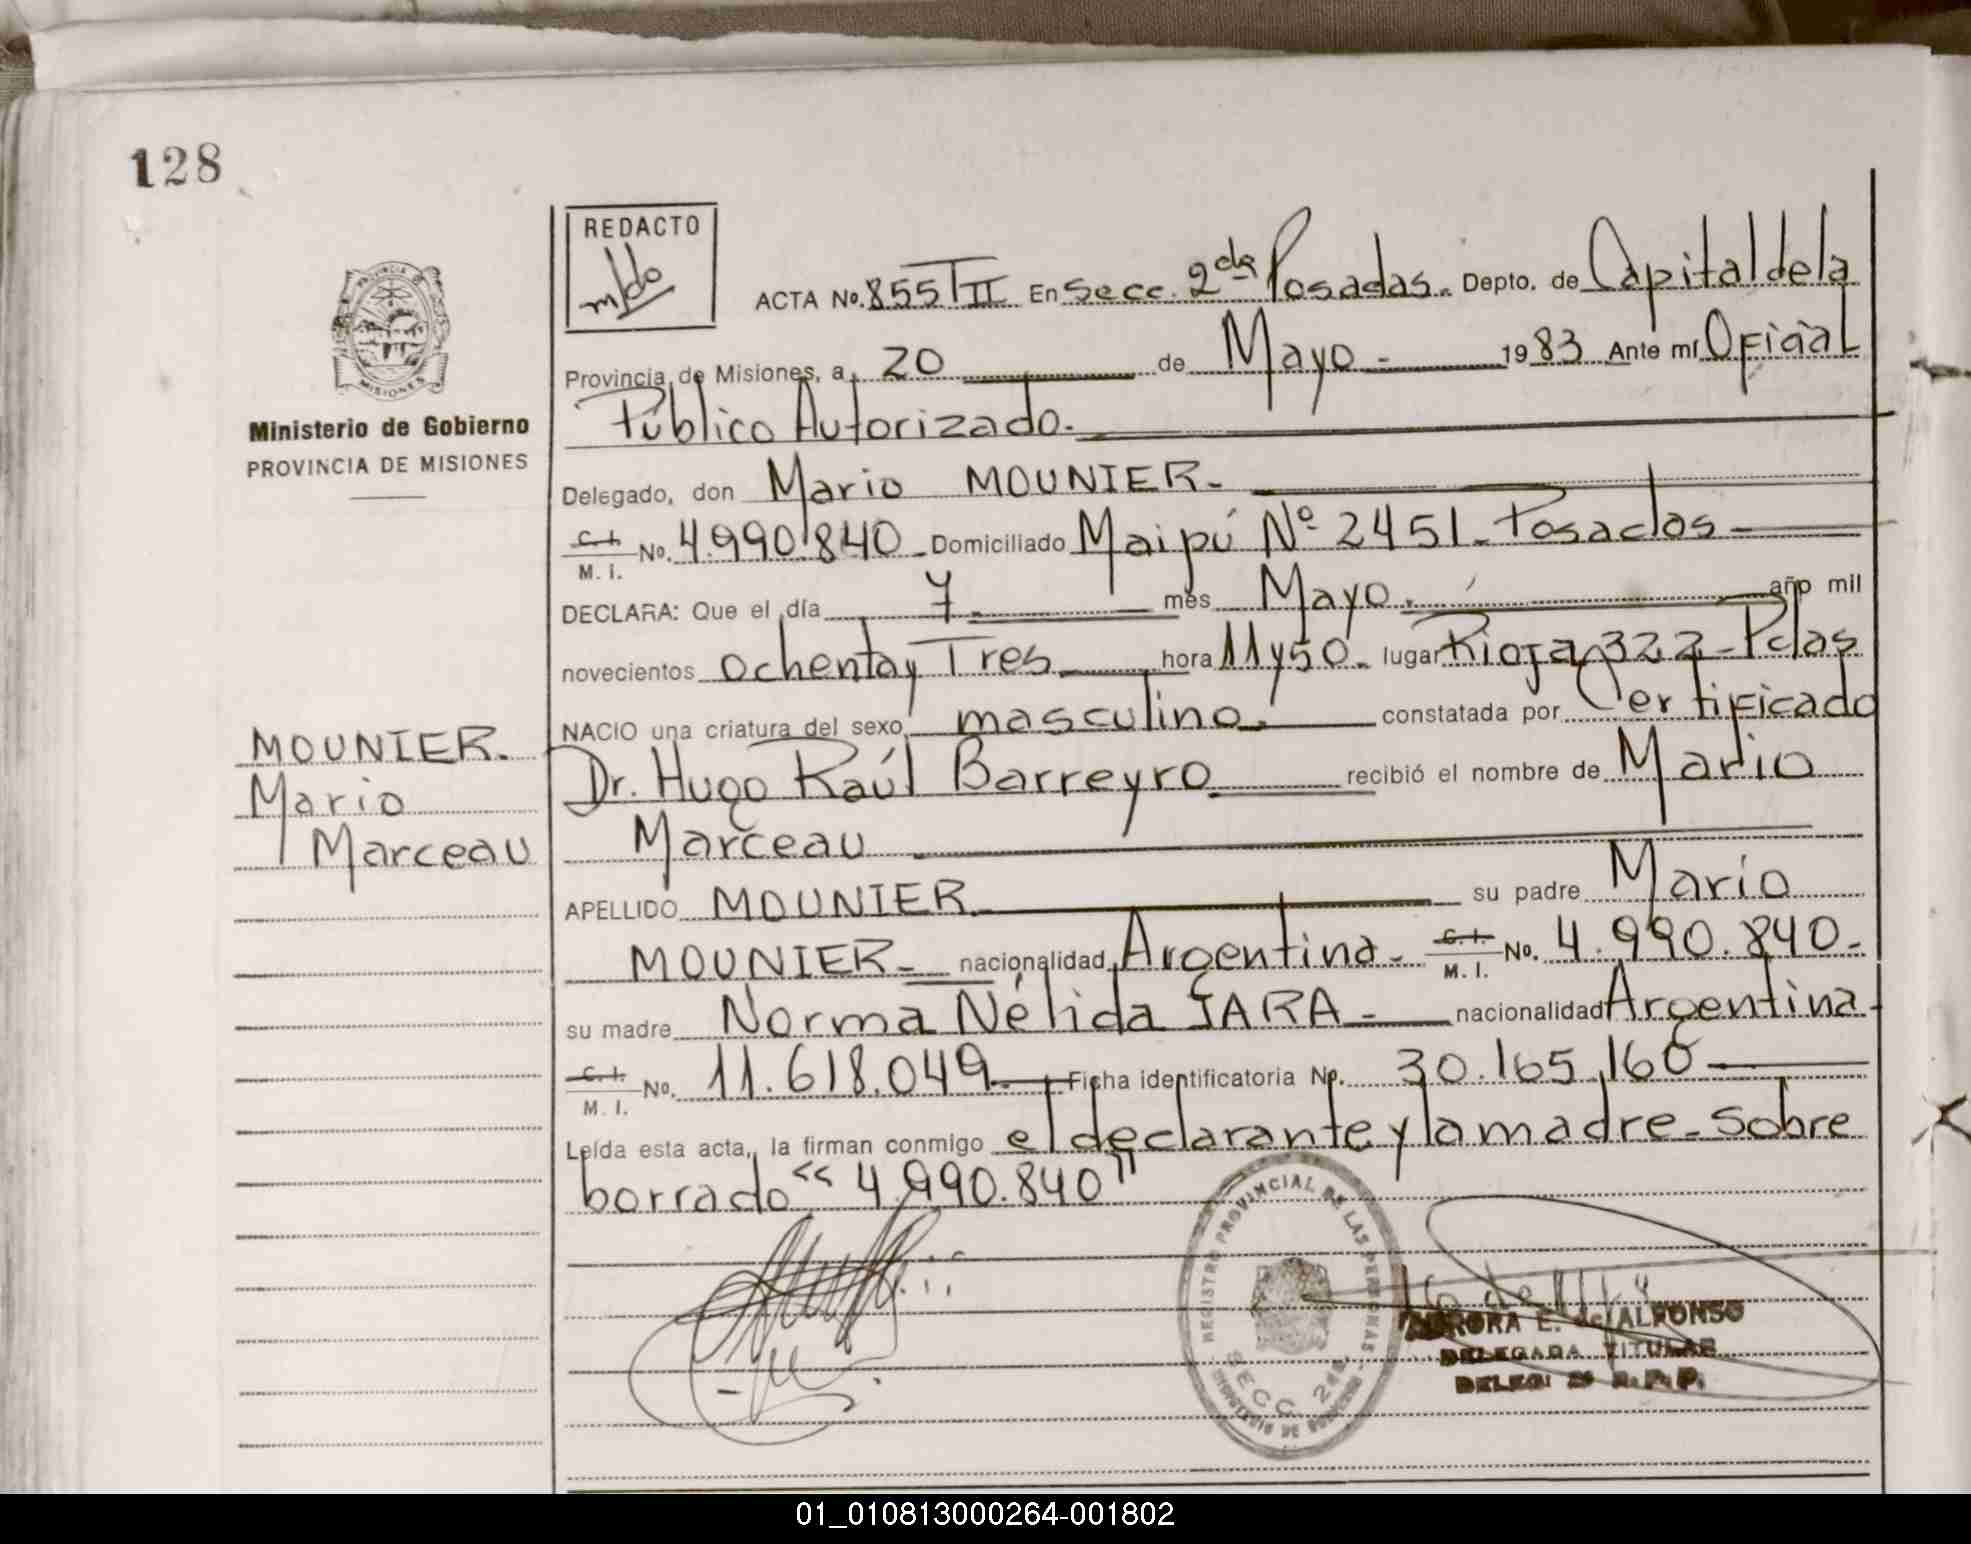 128
REDACTO
ACTA No. 855 TII En Secc. 2da Posadas. Depto. de Capital de la
Provincia de Misiones, a 20 de Mayo - 1983 Ante mí Oficial
Público Autorizado.
Ministerio de Gobierno
PROVINCIA DE MISIONES
Delegado, don Mario MOUNIER.
C. I.
M. I. No. 4.990.840 Domiciliado Maipú Nº 2451. Posadas
DECLARA: Que el día 7 mes Mayo. año mil
novecientos ochenta y Tres hora 11 y 50. lugar Rioja 322 - Pdas
NACIO una criatura del sexo masculino. constatada por Certificado
Dr. Hugo Raúl Barreyro recibió el nombre de Mario
Marceau
MOUNIER.
Mario
Marceau
APELLIDO MOUNIER su padre Mario
MOUNIER nacionalidad Argentina - C. I.
M. I. No. 4.990.840.
su madre Norma Nélida JARA - nacionalidad Argentina
C. I.
M. I. No. 11.618.049. Ficha identificatoria No. 30.165.160
Leída esta acta, la firman conmigo el declarante y la madre - Sobre
borrado "4.990.840"
REGISTRO PROVINCIAL DE LAS PERSONAS
SECC. 2da
MINISTERIO DE GOBIERNO
E. de ALFONSO
DELEGADA TITULAR
DELEG. 2ª R.P.P.
01_010813000264-001802